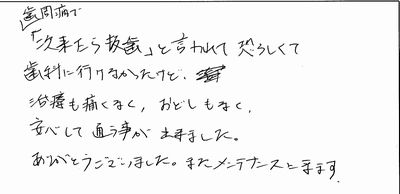 歯周病で
「次来たら抜歯」と言われて恐ろしくて
歯科に行けなかったけど、
治療も痛くなく、おどしもなく、
安心して通う事が出来ました。
ありがとうございました。またメンテナンスに来ます。